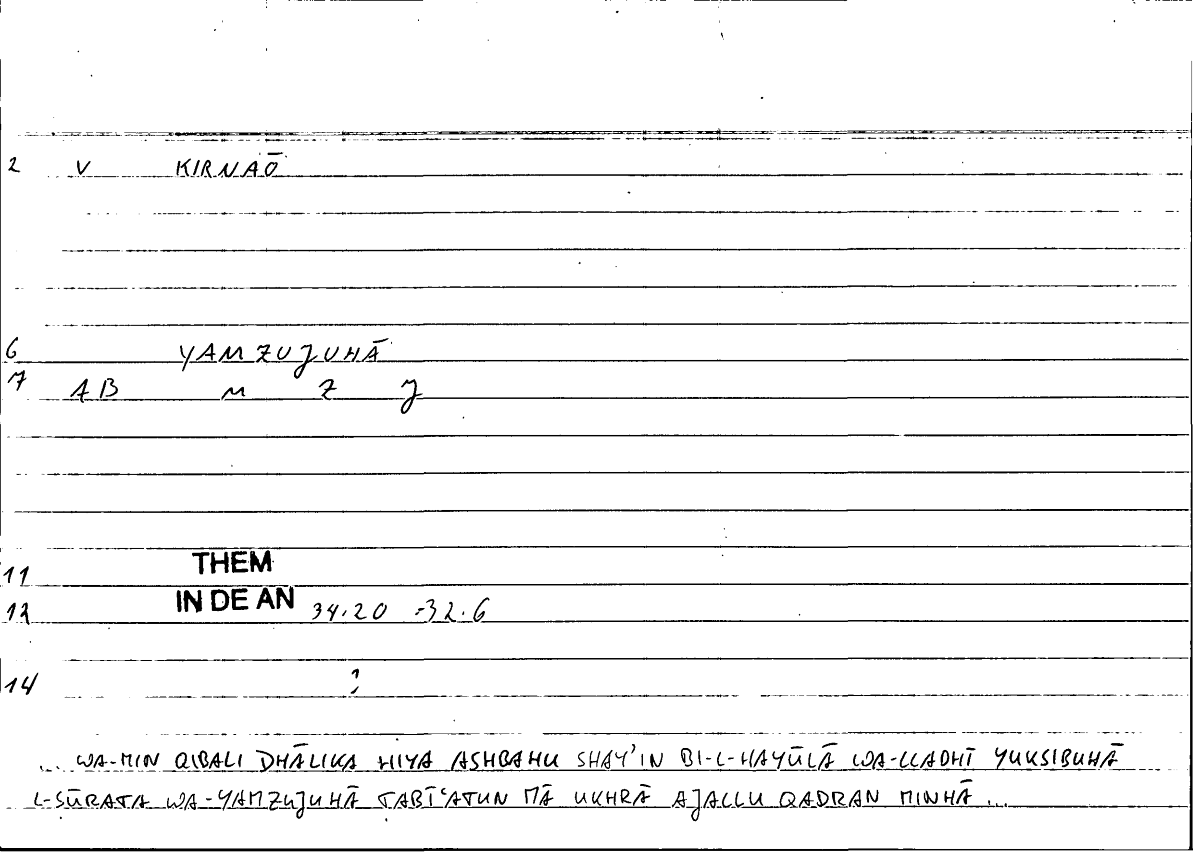 2 V KIRNAŌ
6 YAMZUJUHĀ
7 AB M Z J
11 THEM
12 IN DE AN 34.20 -32.6
14 ?
... WA-MIN QIBALI DHĀLIKA HIYA ASHBAHU SHAY'IN BI-L-HAYŪLĀ WA-LLADHĪ YUKSIBUHĀ
L-SŪRATA WA-YAMZUJUHĀ TABĪ'ATUN MĀ UKHRĀ AJALLU QADRAN MINHĀ ...